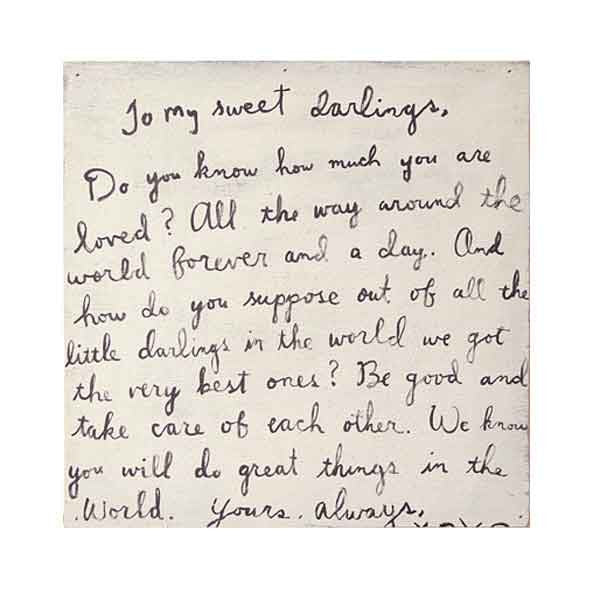 To my sweet darlings,
Do you know how much you are
loved? All the way around the
world forever and a day. And
how do you suppose out of all the
little darlings in the world we got
the very best ones? Be good and
take care of each other. We know
you will do great things in the
World. Yours. always,